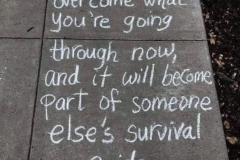 overcome what
you're going
through now,
and it will become
part of someone
else's survival
guide